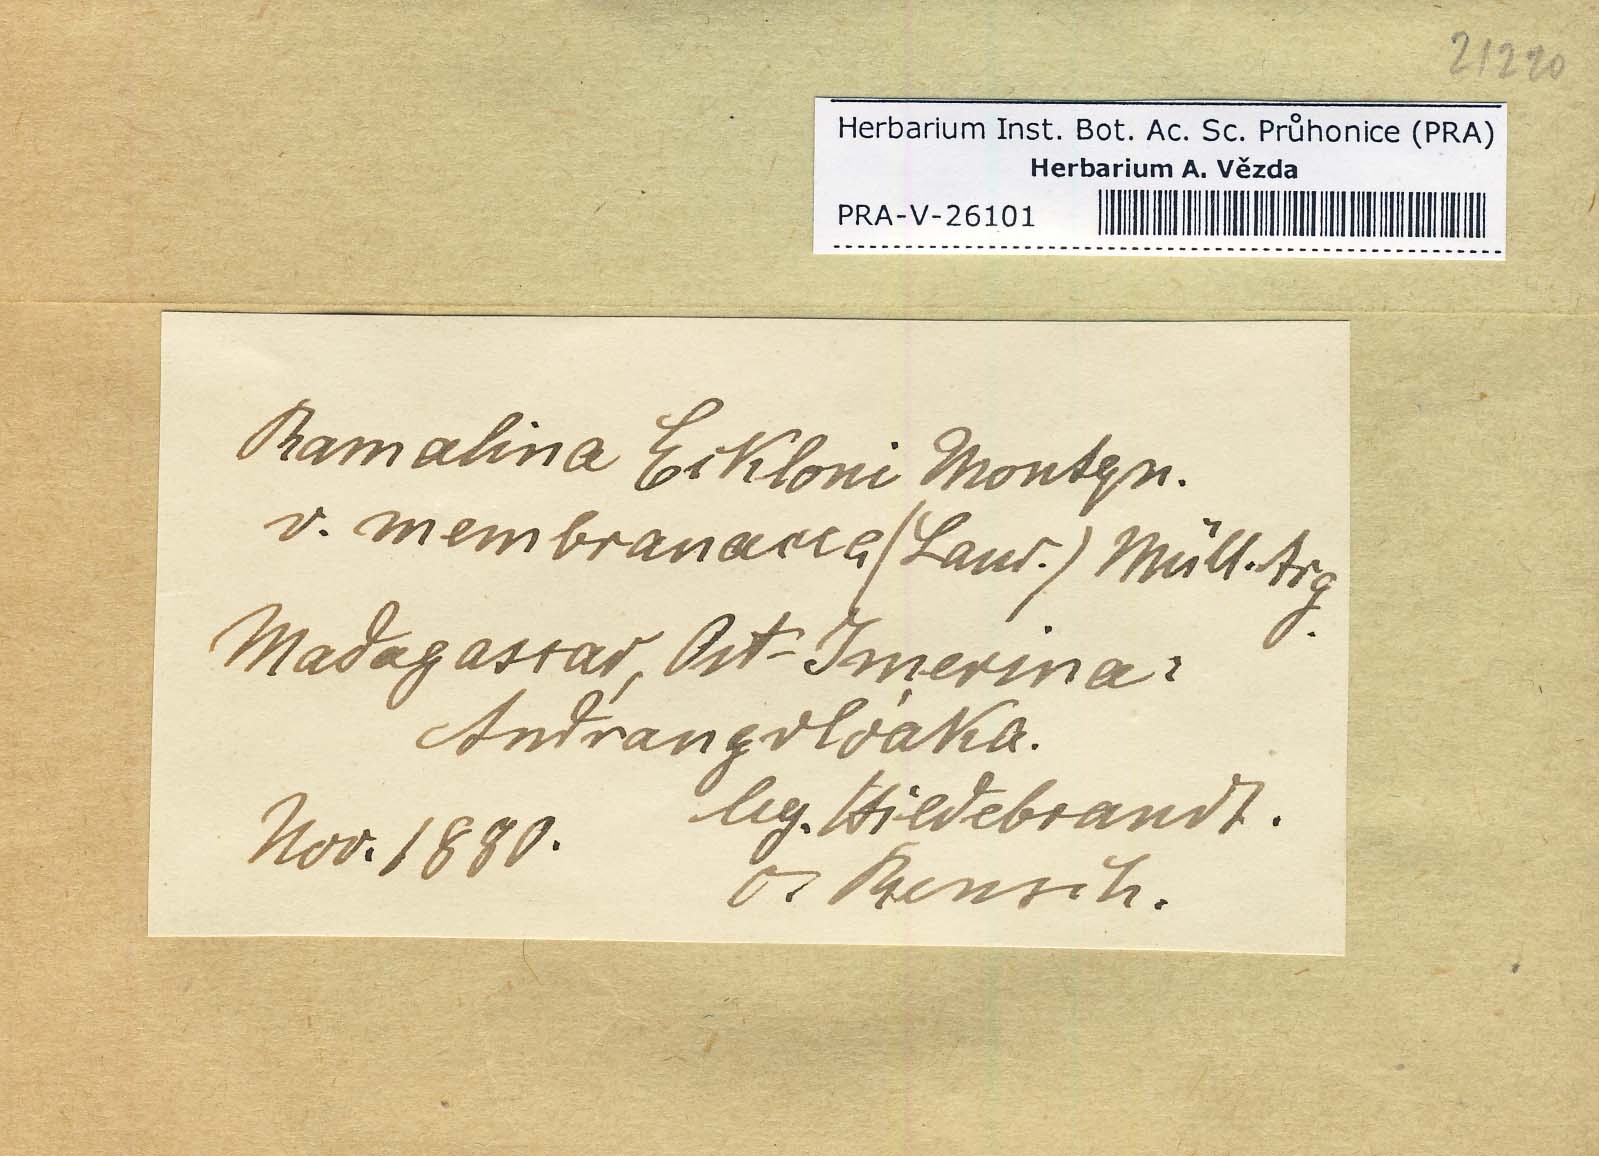 21220
Herbarium Inst. Bot. Ac. Sc. Průhonice (PRA)
Herbarium A. Vězda
PRA-V-26101
Ramalina Eckloni Montgn.
v. membranacea (Laur.) Müll. Arg.
Madagascar, Ost-Imerina:
Andrangoloaka.
Nov. 1880.
leg. Hildebrandt.
Rensch.